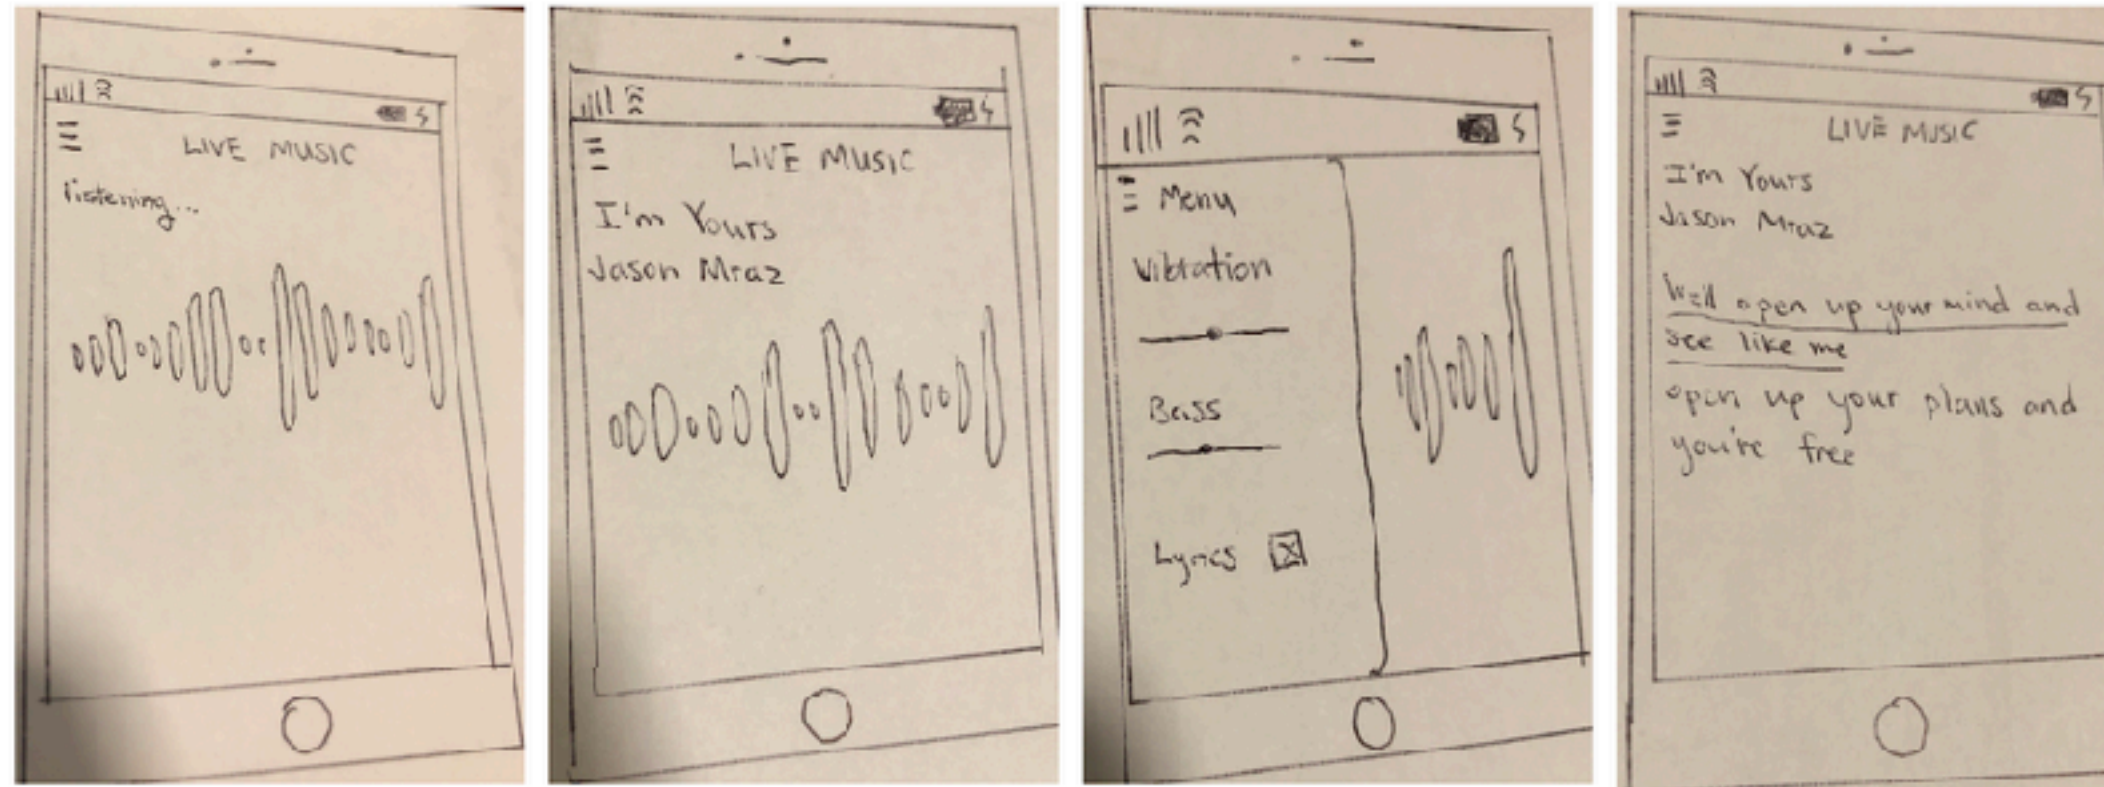 LIVE MUSIC
listening...
LIVE MUSIC
I'm Yours
Jason Mraz
Menu
Vibration
Bass
Lyrics
LIVE MUSIC
I'm Yours
Jason Mraz
Well open up your mind and
see like me
open up your plans and
you're free